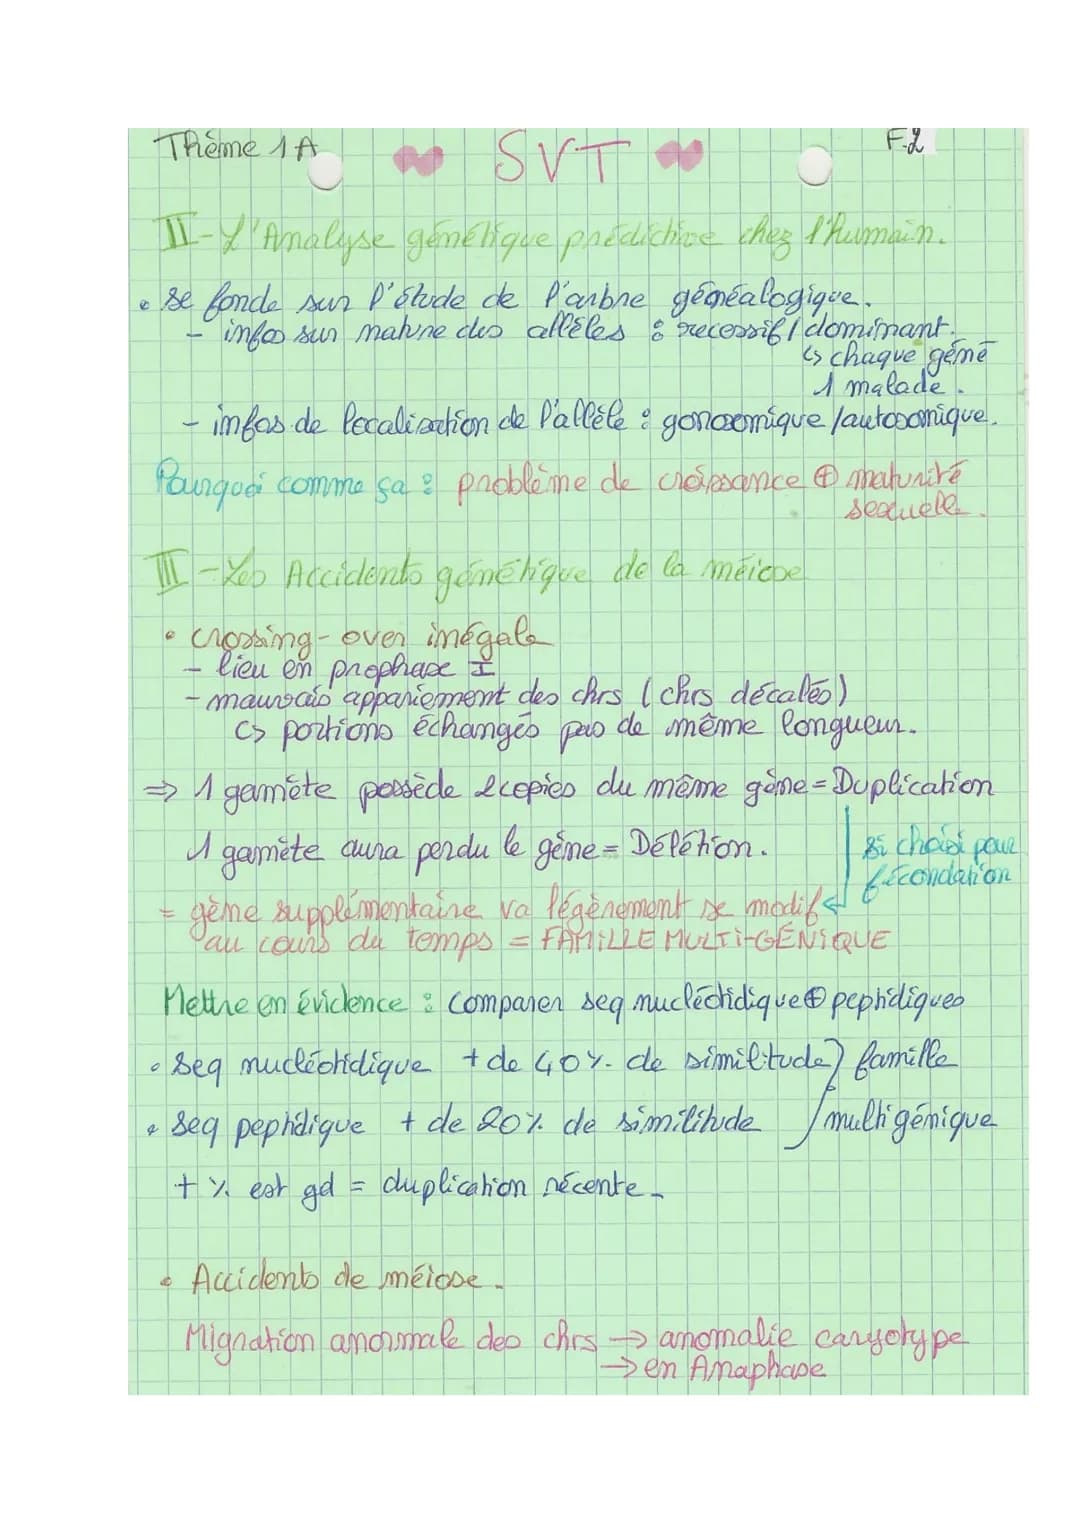 Thème 1A
SVT
F.2
II - L'Analyse génétique prédictive chez l'humain.
• se fonde sur l'étude de l'arbre généalogique.
- infos sur nature des allèles : recessif / dominant.
↳ chaque géné
1 malade.
- infos de localisation de l'allèle : gonosomique / autosomique.
Pourquoi comme ça : problème de croissance ⊕ maturité
sexuelle.
III - Les Accidents génétique de la méiose
• crossing-over inégale
- lieu en prophase I
- mauvais appariement des chrs (chrs décalés)
↳ portions échangés pas de même longueur.
⇒ 1 gamète possède 2 copies du même gène = Duplication
1 gamète aura perdu le gène = Délétion.
si choisi pour
fécondation
= gène supplémentaire va légèrement se modif
au cours du temps = FAMILLE MULTI-GÉNIQUE
Mettre en évidence : comparer seq nucléotidique ⊕ peptidiques
• seq nucléotidique + de 40% de similitude } famille
• seq peptidique + de 20% de similitude } multigénique
+ % est gd = duplication récente.
• Accidents de méiose.
Migration anormale des chrs → anomalie caryotype
→ en Anaphase